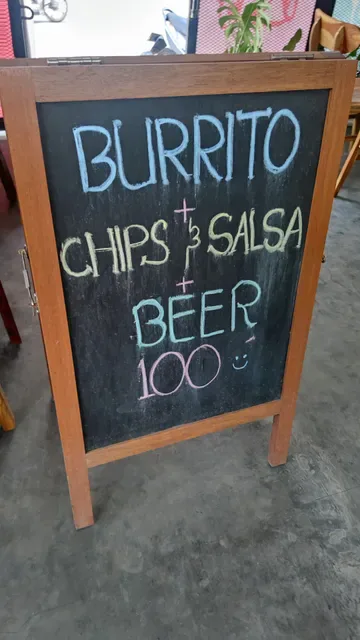 BURRITO
+
CHIPS & SALSA
+
BEER
100